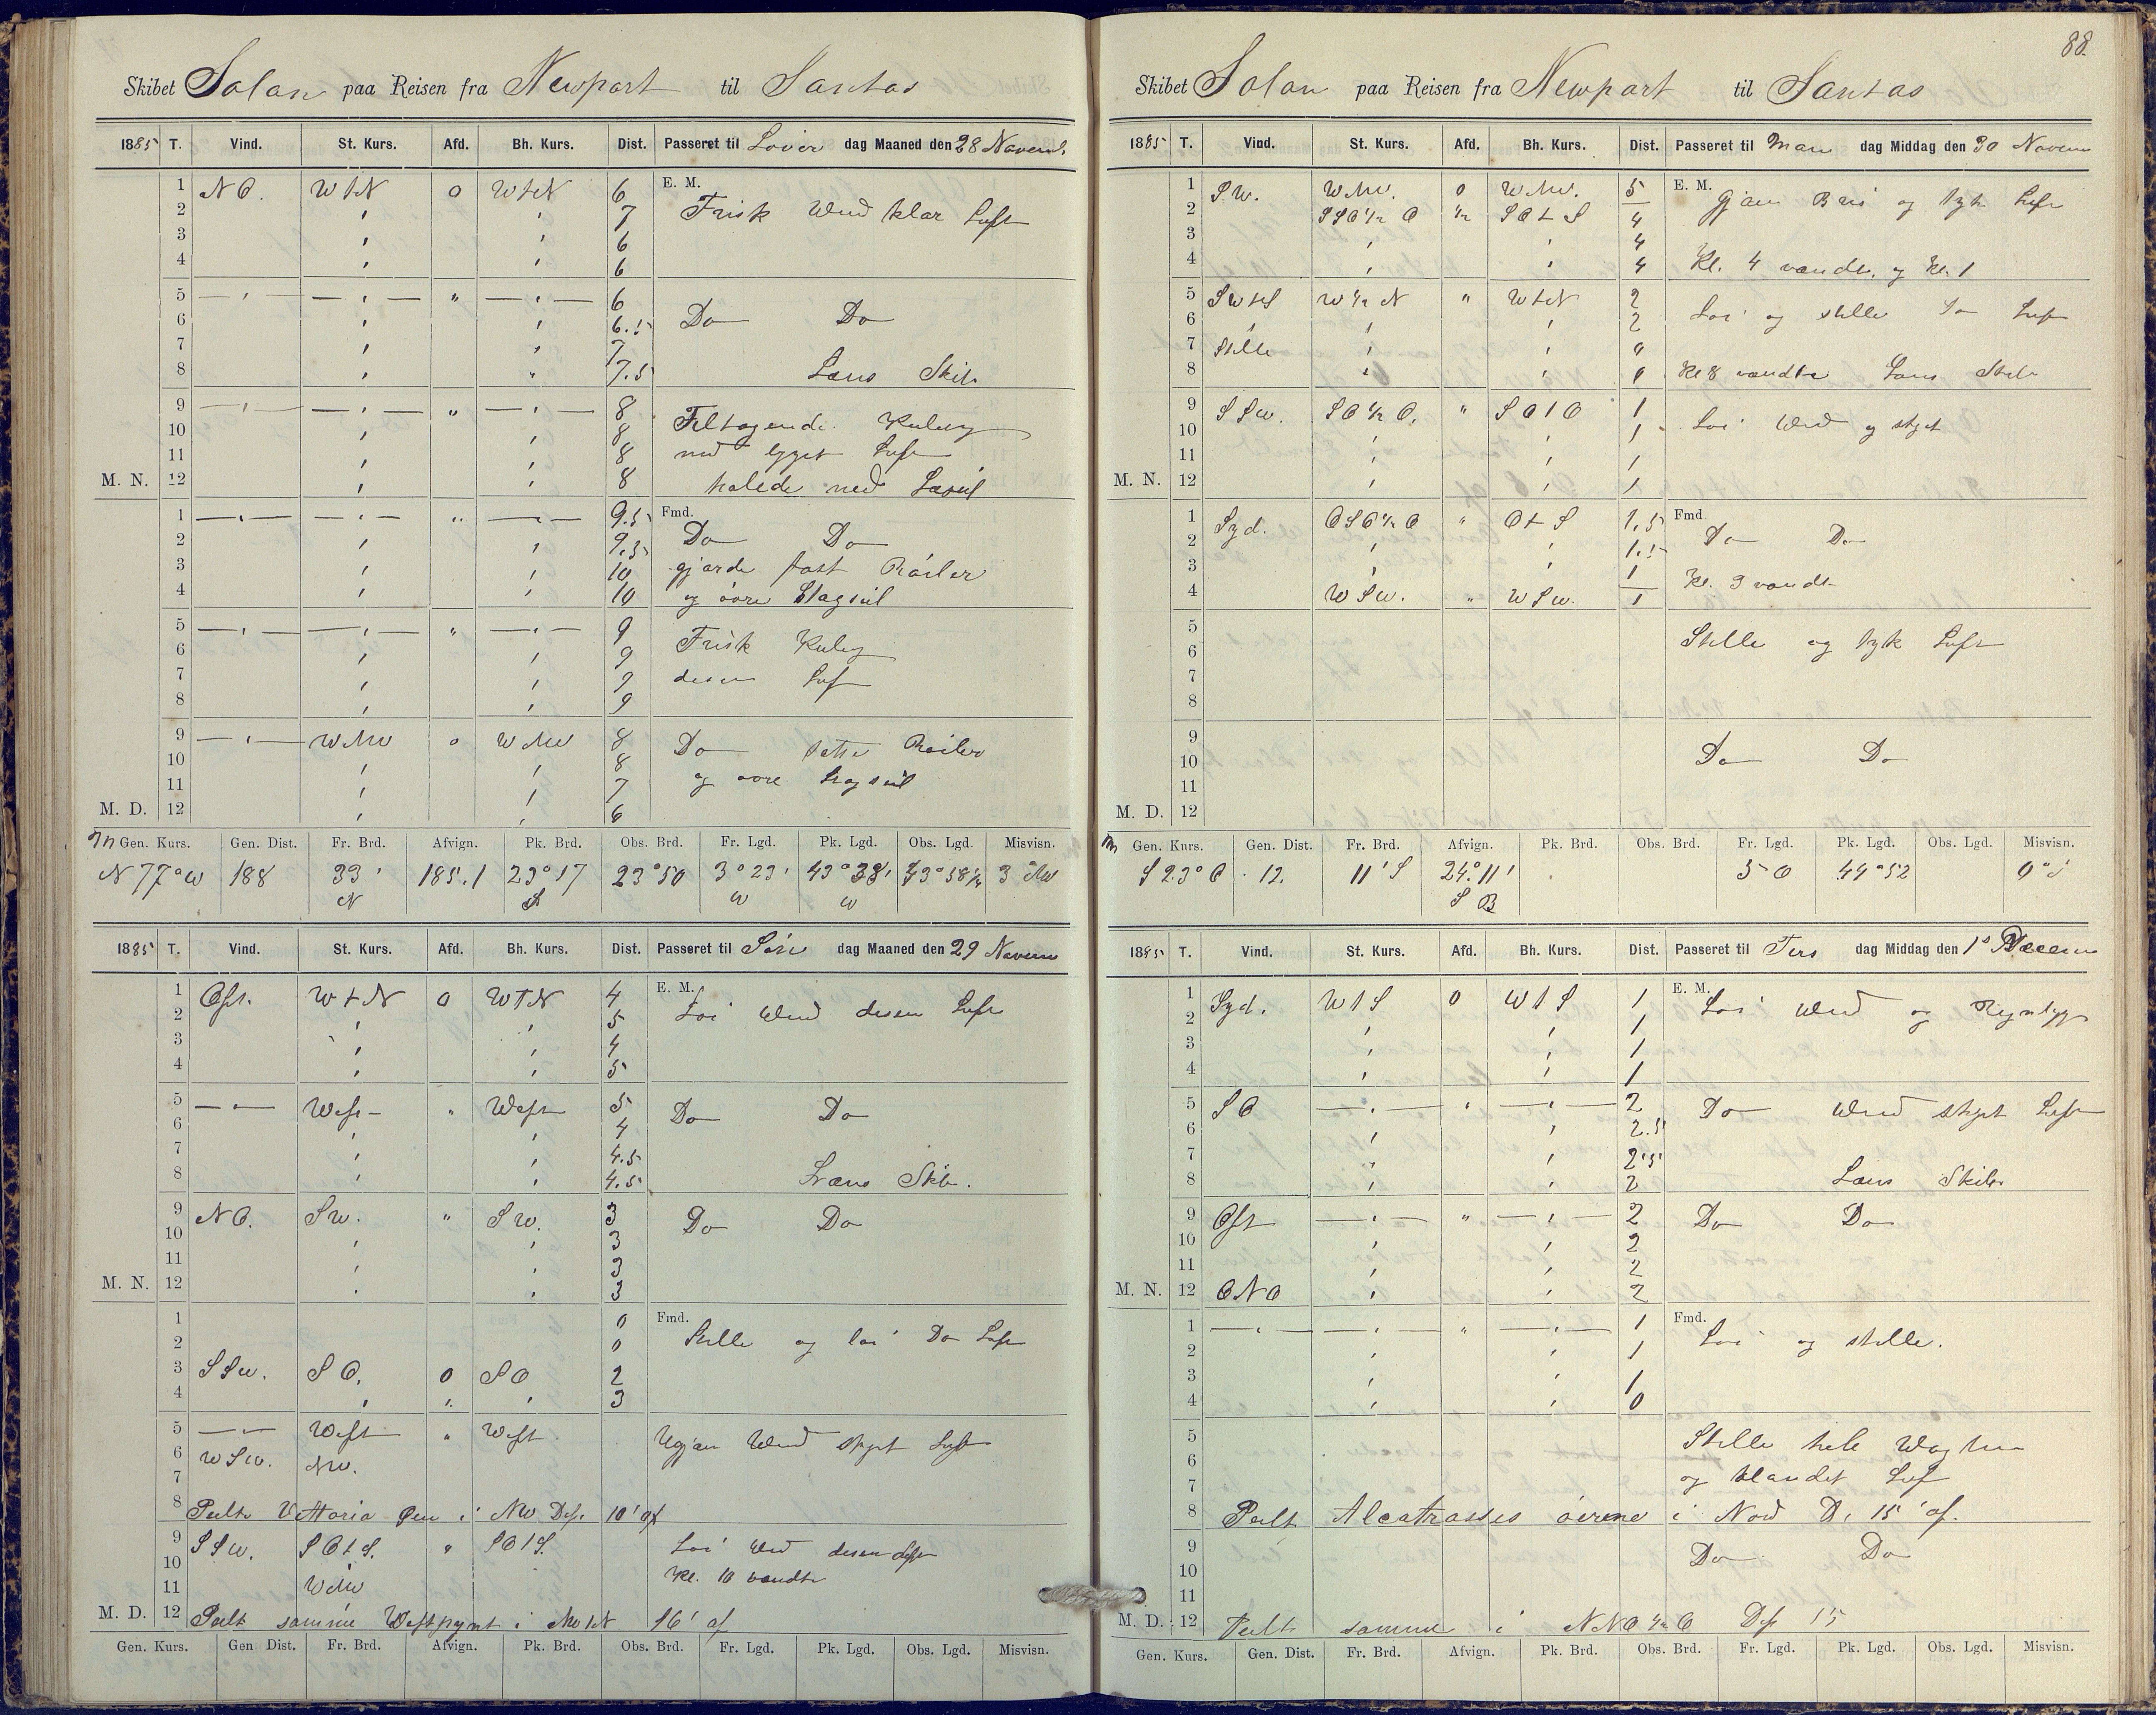 Skibet Solon paa Reisen fra Newport til Santos
1885 T. Vind. St. Kurs. Afd. Bh. Kurs. Dist. Passeret til Löver dag Maaned den 28 Novemb.
1 NO. WtN 0 WtN 6 E. M.
2 ' ' 7 Frisk Wind klar Luft
3 ' ' 6
4 ' ' 6
5 — ' — — ' — " — ' — 6
6 ' ' 6.5 Do Do
7 ' ' 7
8 ' " 7.5 Læns Skib
9 — ' — — ' — " — ' — 8
10 ' ' 8 Tiltagende Kuling
11 ' ' 8 med bygget Luft
M. N. 12 ' ' 8 halede ned Læseil
1 — ' — — ' — " — ' — 9.5 Fmd.
2 ' ' 9.5 Do Do
3 ' ' 10 gjorde fast Röiler
4 ' ' 10 og övre Stagseil
5 — ' — — ' — " — ' — 9
6 ' ' 9 Frisk Kuling
7 ' ' 9 disen Luft
8 ' ' 9
9 — ' — WNW 0 WNW 8
10 ' ' 8 Do satte Röiler
11 ' ' 7 og övre Stagseil
M. D. 12 ' ' 6
Gen. Kurs. Gen. Dist. Fr. Brd. Afvign. Pk. Brd. Obs. Brd. Fr. Lgd. Pk. Lgd. Obs. Lgd. Misvisn.
N 77° W 188 33' N 185.1 23° 17 S 23° 50 3° 23' W 43° 38' W 43° 58 3° NW
1885 T. Vind. St. Kurs. Afd. Bh. Kurs. Dist. Passeret til Sön dag Maaned den 29 Novem
1 Ost. WtN 0 WtN 4 E. M.
2 ' ' 5 Löi Wind disen Luft
3 ' ' 4
4 ' ' 5
5 — ' — West " West 5
6 ' ' 4 Do Do
7 ' ' 4.5
8 ' ' 4.5 Læns Skib.
9 NO. SW. " SW. 3
10 ' ' 3 Do Do
11 ' ' 3
M. N. 12 ' ' 3
1 0 Fmd.
2 0 Stille og löi Do Luft
3 SSW. SO. 0 SO 2
4 ' " ' 3
5 — ' — West " West
6 WSW. NW. Ugjæn Wind skyet Luft
7
8 Peilte Vittoria Öen i NW Dis. 10' af
9 SSW. SOtS. " SOtS.
10 Löi Wind disen Luft
11 WNW Kl. 10 vendte
M. D. 12 Peilt samme Westpynt i NWtN 16' af
Gen. Kurs. Gen Dist. Fr. Brd. Afvign. Pk. Brd. Obs. Brd. Fr. Lgd. Pk. Lgd. Obs. Lgd. Misvisn.
88.
Skibet Solon paa Reisen fra Newport til Santos
1885 T. Vind. St. Kurs. Afd. Bh. Kurs. Dist. Passeret til Man dag Middag den 30 Novem
1 SW. WNW. 0 WNW. 5 E. M.
2 SSO½O ½ SOtS 4 Gjæv Bris og tyk Luft
3 ' ' 4
4 ' ' 4 Kl. 4 vendt. og Kl. 1
5 SWtS W½N " WtN 2
6 ' ' ' 2 Löi og stille Do Luft
7 Stille ' ' 0
8 ' ' Kl 8 vendte Læns Skib
9 SSW. SO½O. " SOtO 1
10 ' ' 1 Löi Wind og skyet
11 ' ' 1
M. N. 12 ' ' 1
1 Syd. OSO½O " OtS 1,5 Fmd
2 ' ' 1.5 Do Do
3 ' ' 1
4 WSW. " WSW. 1 Kl. 3 vendt
5
6 Stille og tyk Luft
7
8
9
10 Do Do
11
M. D. 12
Gen. Kurs. Gen. Dist. Fr. Brd. Afvign. Pk. Brd. Obs. Brd. Fr. Lgd. Pk. Lgd. Obs. Lgd. Misvisn.
S 23° O 12. 11' S 24° 11' S B 5 O 44° 52
1885 T. Vind. St. Kurs. Afd. Bh. Kurs. Dist. Passeret til Tirs dag Middag den 1s Decem
1 Syd. WtS 0 WtS 1 E. M.
2 ' ' 1 Löi Wind og Regnbyge
3 ' ' 1
4 ' ' 1
5 SO — ' — ' — ' — 2
6 ' ' 2.5 Do Wind skyet Luft
7 ' ' 2'5
8 ' ' 2 Læns Skib
9 Ost — ' — " — ' — 2
10 ' ' 2 Do Do
11 ' ' 2
M. N. 12 ONO ' ' 2
1 — ' — — ' — " — ' — 1 Fmd.
2 ' ' 1 Löi og stille.
3 ' ' 1
4 ' ' 0
5 Stille hele Wagten
6 og blandet Luf
7
8 Peilt Alcatrasses öerne i Nord D. 15' af.
9
10 Do Do
11
M. D. 12 Peilt samme i NNO½O Dis 15
Gen. Kurs. Gen. Dist. Fr. Brd. Afvign. Pk. Brd. Obs. Brd. Fr. Lgd. Pk. Lgd. Obs. Lgd. Misvisn.